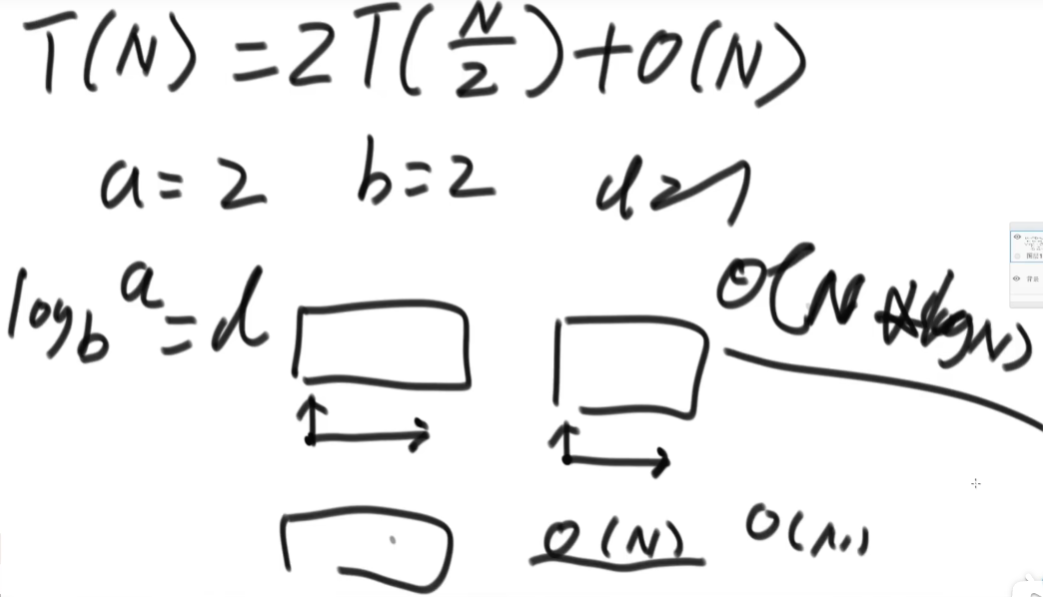 T(N) = 2T(N/2) + O(N)
a = 2 b = 2 d = 1
log_b a = d
O(N * logN)
O(N) O(N)